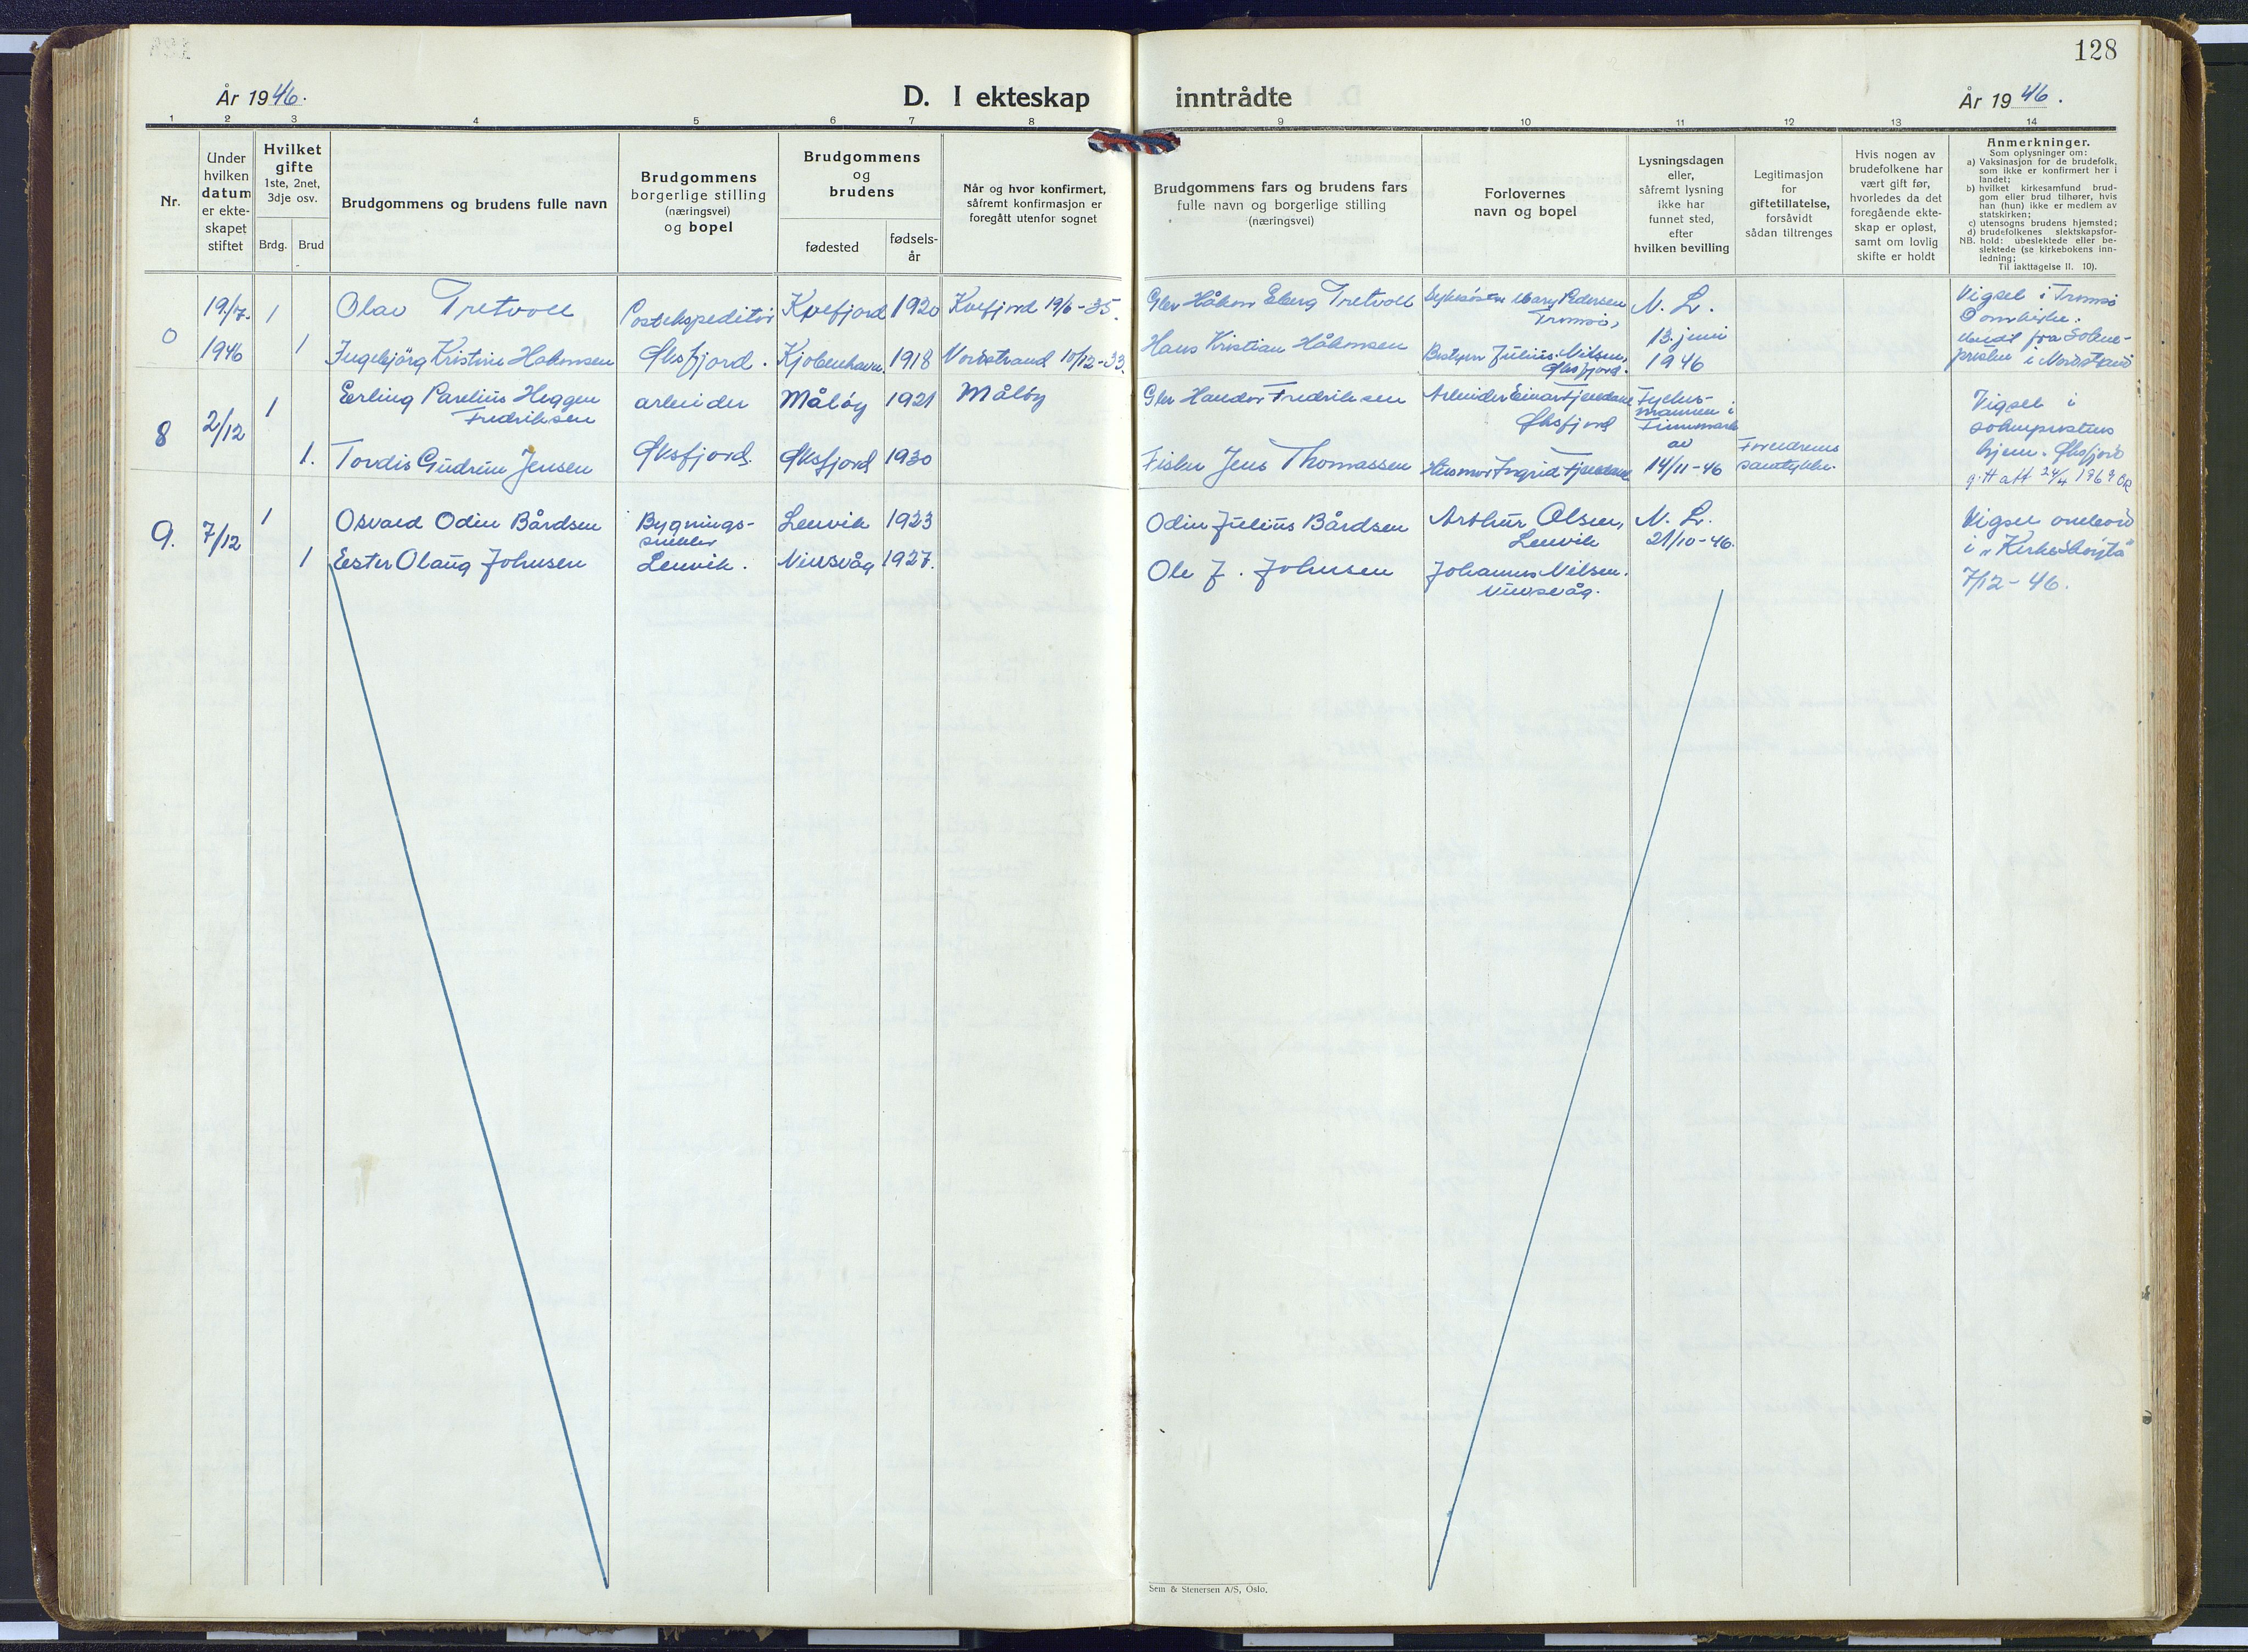 128
År 1946.
D. I ekteskap inntrådte
År 1946.
1 2 3 4 5 6 7 8 9 10 11 12 13 14
Nr.
Under
hvilken
datum
er ekte-
skapet
stiftet
Hvilket
gifte
1ste, 2net,
3dje osv.
Brdg. Brud
Brudgommens og brudens fulle navn
Brudgommens
borgerlige stilling
(næringsvei)
og bopel
Brudgommens
og
brudens
fødested
fødsels-
år
Når og hvor konfirmert,
såfremt konfirmasjon er
foregått utenfor sognet
Brudgommens fars og brudens fars
fulle navn og borgerlige stilling
(næringsvei)
Forlovernes
navn og bopel
Lysningsdagen
eller,
såfremt lysning
ikke har
funnet sted,
efter
hvilken bevilling
Legitimasjon
for
giftetillatelse,
forsåvidt
sådan tiltrenges
Hvis nogen av
brudefolkene har
vært gift før,
hvorledes da det
foregående ekte-
skap er opløst,
samt om lovlig
skifte er holdt
Anmerkninger.
Som oplysninger om:
a) Vaksinasjon for de brudefolk,
som ikke er konfirmert her i
landet;
b) hvilket kirkesamfund brud-
gom eller brud tilhører, hvis
han (hun) ikke er medlem av
statskirken;
c) utensogns brudens hjemsted;
d) brudefolkenes slektskapsfor-
NB. hold: ubeslektede eller be-
slektede (se kirkebokens inn-
ledning;
Til iakttagelse II. 10).
0
19/7.
1946
1
1
Olav Tretvoll
Ingebjörg Kristine Hakonsen
Postekspeditör
Øksfjord.
Kvefjord 1920
Kjöbenhavn. 1918
Kvefjord 19/6-35.
Nordstrand 10/12-33.
Gbr Håkon Eberg Tretvoll
Hans Kristian Håkonsen
Sykesöster Mary Pedersen
Tromsö,
Bestyrer Julius Nilsen,
Øksfjord.
N. L.
13. juni
1946
Vigsel i Tromsö
Domkirke.
Meldt fra Sokne-
presten i Nordstrand
8
2/12
1
1.
Erling Parelius Heggen
Fredriksen
Tordis Gudrun Jensen
arbeider
Øksfjord.
Måløy 1921
Øksfjord 1930
Måløy
Gbr Haudor Fredriksen
Fisker Jens Thomassen
Arbeider Einar Fjendane
Øksfjord
Husmor Ingrid Fjendane
Fylkes-
mannen i
Finnmark
av
14/11-46
Foreldrenes
samtykke.
Vigsel i
sokneprestens
hjem. Øksfjord
gitt att 24/4 1969 OR
9.
7/12
1
1
Osvald Odin Bårdsen
Ester Olaug Johnsen
Bygnings-
snikker
Lenvik.
Lenvik 1923
Nuvsvåg 1927.
Odin Julius Bårdsen
Ole J. Johnsen
Arthur Olsen,
Lenvik
Johannes Nilsen.
Nuvsvåg.
N. L.
21/10-46.
Vigsel ombord
i "Kirkeskøyta"
7/12-46.
Sem & Stenersen A/S, Oslo.